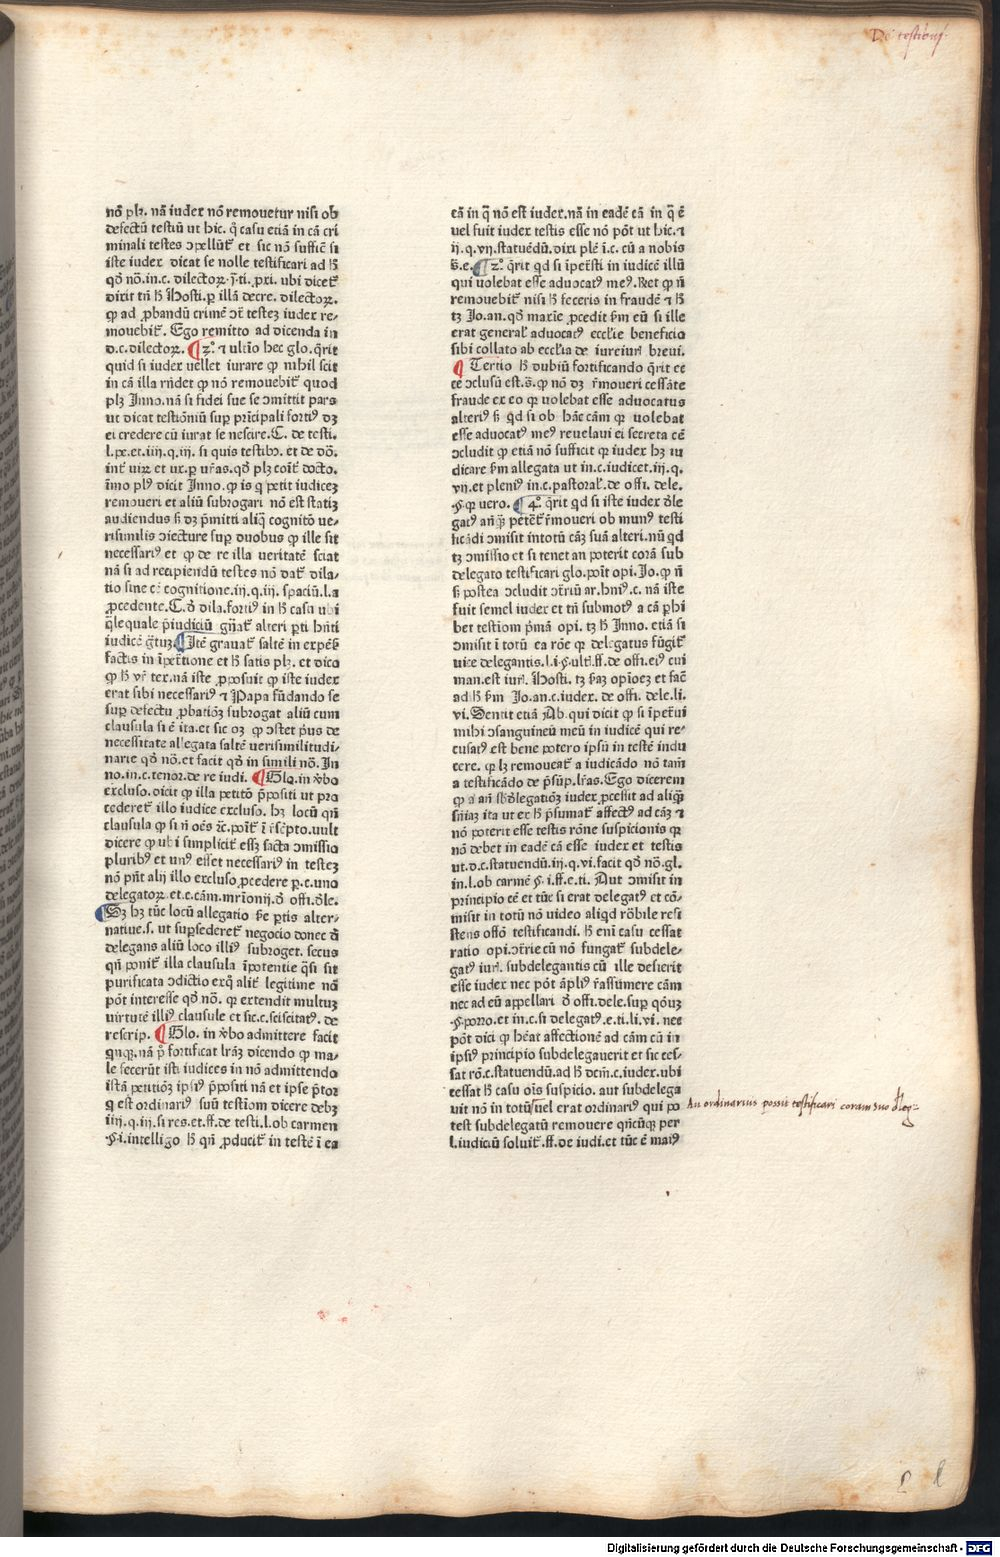 De testibus
nō plꝫ. nā iudex nō remouetur nisi ob
defectū testiū ut hic. q̇ casu etiā in cā cri
minali testes ↄpellūt᷑ et sic nō suffic̄ si
iste iudex dicat se nolle testificari ad h̄
qđ nō. in. c. dilectoꝝ. j̄. ti. pxi. ubi dicet᷑
dixit tn̄ h̄ Hosti. ꝑ illā decre. dilectoꝝ.
ꝙ ad ꝓbandū crimē ↄt᷑ testeꝫ iudex re⸗
mouebit᷑. Ego remitto ad dicenda in
d. c. dilectoꝝ. ¶ 2°. ⁊ ultīo hec glo. q̄rit
quid si iudex uellet iurare ꝙ nihil scit
in cā illa rn̄det ꝙ nō remouebit᷑ quod
plꝫ Inno. nā si fidei sue se ↄmittit pars
ut dicat testiōniū suꝑ pn̄cipali fortiꝰ dꝫ
ei credere cū iurat se nescire. C. de testi.
l. pe. et. iiij. q. iij. si quis testibꝫ. et de dō.
int᷑ uiꝝ et ux. ꝑ ur̄as. qđ plꝫ coīt᷑ docto.
īmo plꝰ dicit Inno. ꝙ is q̇ petit iudiceꝫ
remoueri et aliū subrogari nō est statiꝫ
audiendus s̄ dꝫ p̄mitti aliq̄ cognitō ue⸗
risimilis ↄiecture suꝑ duobus ꝙ ille sit
necessariꝰ et ꝙ de re illa ueritatē sciat
nā si ad recipiendū testes nō dat᷑ dila⸗
tio sine cē cognitione. iij. q. iij. spaciū. l. a
ꝓcedente. C. đ dila. fortiꝰ in h̄ casu ubi
q̄lequale p̄iudiciū gn̄at᷑ alteri ꝑti hn̄ti
iudicē ḡtuꝫ ¶ Itē grauat᷑ saltē in expēs̄
factis in īpet᷑tione et h̄ satis plꝫ. et dico
ꝙ h̄ ur̄ tex. nā iste ꝓposuit ꝙ iste iudex
erat sibi necessariꝰ ⁊ Papa fūdando se
suꝑ defectu ꝓbatiōꝫ subrogat aliū cum
clausula si ē ita. et sic oꝫ ꝙ ↄstet pͥus de
necessitate allegata saltē uerisimilitudi⸗
narie qđ nō. et facit qđ in simili nō. In
no. in. c. tenoꝛ. de re iudi. ¶ Glo. in v̄bo
excluso. dicit ꝙ illa petitō p̄positi ut pro
cederet᷑ illo iudice excluso. hꝫ locū qn̄
clausula ꝙ si n̄ oēs ⁊c̄. poīt᷑ ī r̄sc̄pto. uult
dicere ꝙ ubi simplicit᷑ essꝫ facta ↄmissio
pluribꝰ et unꝰ esset necessariꝰ in testeꝫ
nō pn̄t alij illo excluso ꝓcedere ꝑ. c. uno
delegatoꝝ. et. c. cām. mrīonij. đ offi. đle.
¶ Sꝫ hꝫ tūc locū allegatio s̄e ꝑtis alter⸗
natiue. s. ut suꝑsederet᷑ negocio donec đ
delegans aliū loco illiꝰ subroget. secus
qn̄ ponit᷑ illa clausula īpotentie q̄si sit
purificata ↄdictio exq̇ alit᷑ legitime nō
pōt interesse qđ nō. ꝙ extendit multuꝫ
uirtutē illiꝰ clausule et sic. c. sciscitatꝰ. de
rescrip. ¶ Glo. in v̄bo admittere facit
quꝙ. nā p̊ fortificat lr̄aꝫ dicendo ꝙ ma⸗
le fecerūt isti iudices in nō admittendo
istā petitiōꝫ ipsiꝰ p̄positi nā et ipse p̄toꝛ
q̇ est ordinariꝰ suū testīom dicere debꝫ
iiij. q. iij. si res. et. ff. de testi. l. ob carmen
§. i. intelligo h̄ qn̄ ꝓducit᷑ in testē ī ea
cā in q̄ nō est iudex. nā in eadē cā in q̄ ē
uel fuit iudex testis esse nō pōt ut hic. ⁊
ij. q. vij. statuēdū. dixi plē ī. c. cū a nobis
s̄. e. ¶ 2°. q̄rit qd si īpet᷑sti in iudicē illū
qui uolebat esse aduocatꝰ meꝰ. Ret ꝙ n̄
remouebit᷑ nisi h̄ feceris in fraudē ⁊ h̄
tꝫ Jo. an. qđ maxīe ꝓcedit s̄m eū si ille
erat general᷑ aduocatꝰ eccl̄ie beneficio
sibi collato ab eccl̄ia de iureiur̄ breui.
¶ Tertio h̄ dubiū fortificando q̄rit ec
ce ↄclusū est. s̄. ꝙ nō dꝫ r̄moueri cessāte
fraude ex eo ꝙ uolebat esse aduocatus
alteriꝰ s̄ qd si ob hāc cām ꝙ uolebat
esse aduocatꝰ meꝰ reuelaui ei secreta cē
ↄcludit ꝙ etiā nō sufficit ꝙ iudex hꝫ iu
dicare s̄m allegata ut in. c. iudicet. iij. q.
vij. et pleniꝰ in. c. pastoral᷑. de offi. dele.
§. ꝙ uero. ¶ 4°. q̄rit qd si iste iudex đle
gatꝰ an̄ꝙ̄ petet᷑ r̄moueri ob munꝰ testi
ficādi ↄmisit intotū cāꝫ suā alteri. nū qd
tꝫ ↄmissio et si tenet an poterit corā sub
delegato testificari glo. poīt opi. Jo. ꝙ n̄
s̄ postea ↄcludit ↄtr̄iū ar. hniꝰ. c. nā iste
fuit semel iudex et tn̄ submotꝰ a cā ꝑhi
bet testīom pͥmā opi. tꝫ h̄ Inno. etiā si
ↄmisit ī totū ea rōe ꝙ delegatus fūgit᷑
uice delegantis. l. i. §. ulti. ff. de offi. eiꝰ cui
man. est iur̄. Hosti. tꝫ s̄aꝫ opioeꝫ et fac̄
ad h̄ s̄m Jo. an. c. iudex. de offi. dele. li.
vi. Sentit etiā Ab. qui dicit ꝙ si īpet᷑ui
mihi ↄsanguineū meū in iudicē qui re⸗
cusatꝰ est bene potero ipsū in testē indu
cere. ꝙ lꝫ remoueat᷑ a iudicādo nō tam̄
a testificādo de p̄suꝑ. lr̄as. Ego dicerem
ꝙ a an̄ sb̄đlegatiōꝫ iudex ꝓcessit ad aliq̄ꝫ
sn̄iaꝫ ita ut ex h̄ p̄sumat᷑ affectꝰ ad cāꝫ ⁊
nō poterit esse testis rōne suspicionis ꝙ
nō debet in eadē cā esse iudex et testis
ut. d. c. statuendū. iij. q. vi. facit qđ nō. gl.
in. l. ob carmē §. i. ff. e. ti. Aut ↄmisit in
principio cē et tūc si erat delegatꝰ et cō⸗
misit in totū nō video aliqd rōbile resi
stens offō testificandi. h̄ eni casu cessat
ratio opi. ↄtr̄ie cū nō fungat᷑ subdele⸗
gatꝰ iur̄. subdelegantis cū ille desierit
esse iudex nec pōt āpliꝰ r̄assumere cām
nec ad eū appellari đ offi. dele. suꝑ qōuꝫ
§. porro. et in. c. si delegatꝰ. e. ti. li. vi. nec
pōt dici ꝙ hēat affectionē ad cām cū in
ipsiꝰ principio subdelegauerit et sic ces⸗
sat rō. c. statuendū. ad h̄ dem̄. c. iudex. ubi
cessat h̄ casu oīs suspicio. aut subdelega
uit nō in totū uel erat ordinariꝰ qui po
test subdelegatū remouere qn̄cūqꝫ per
l. iudiciū soluit᷑. ff. de iudi. et tūc ē maiꝰ
An ordinarius possit testificari coram suo dleg~